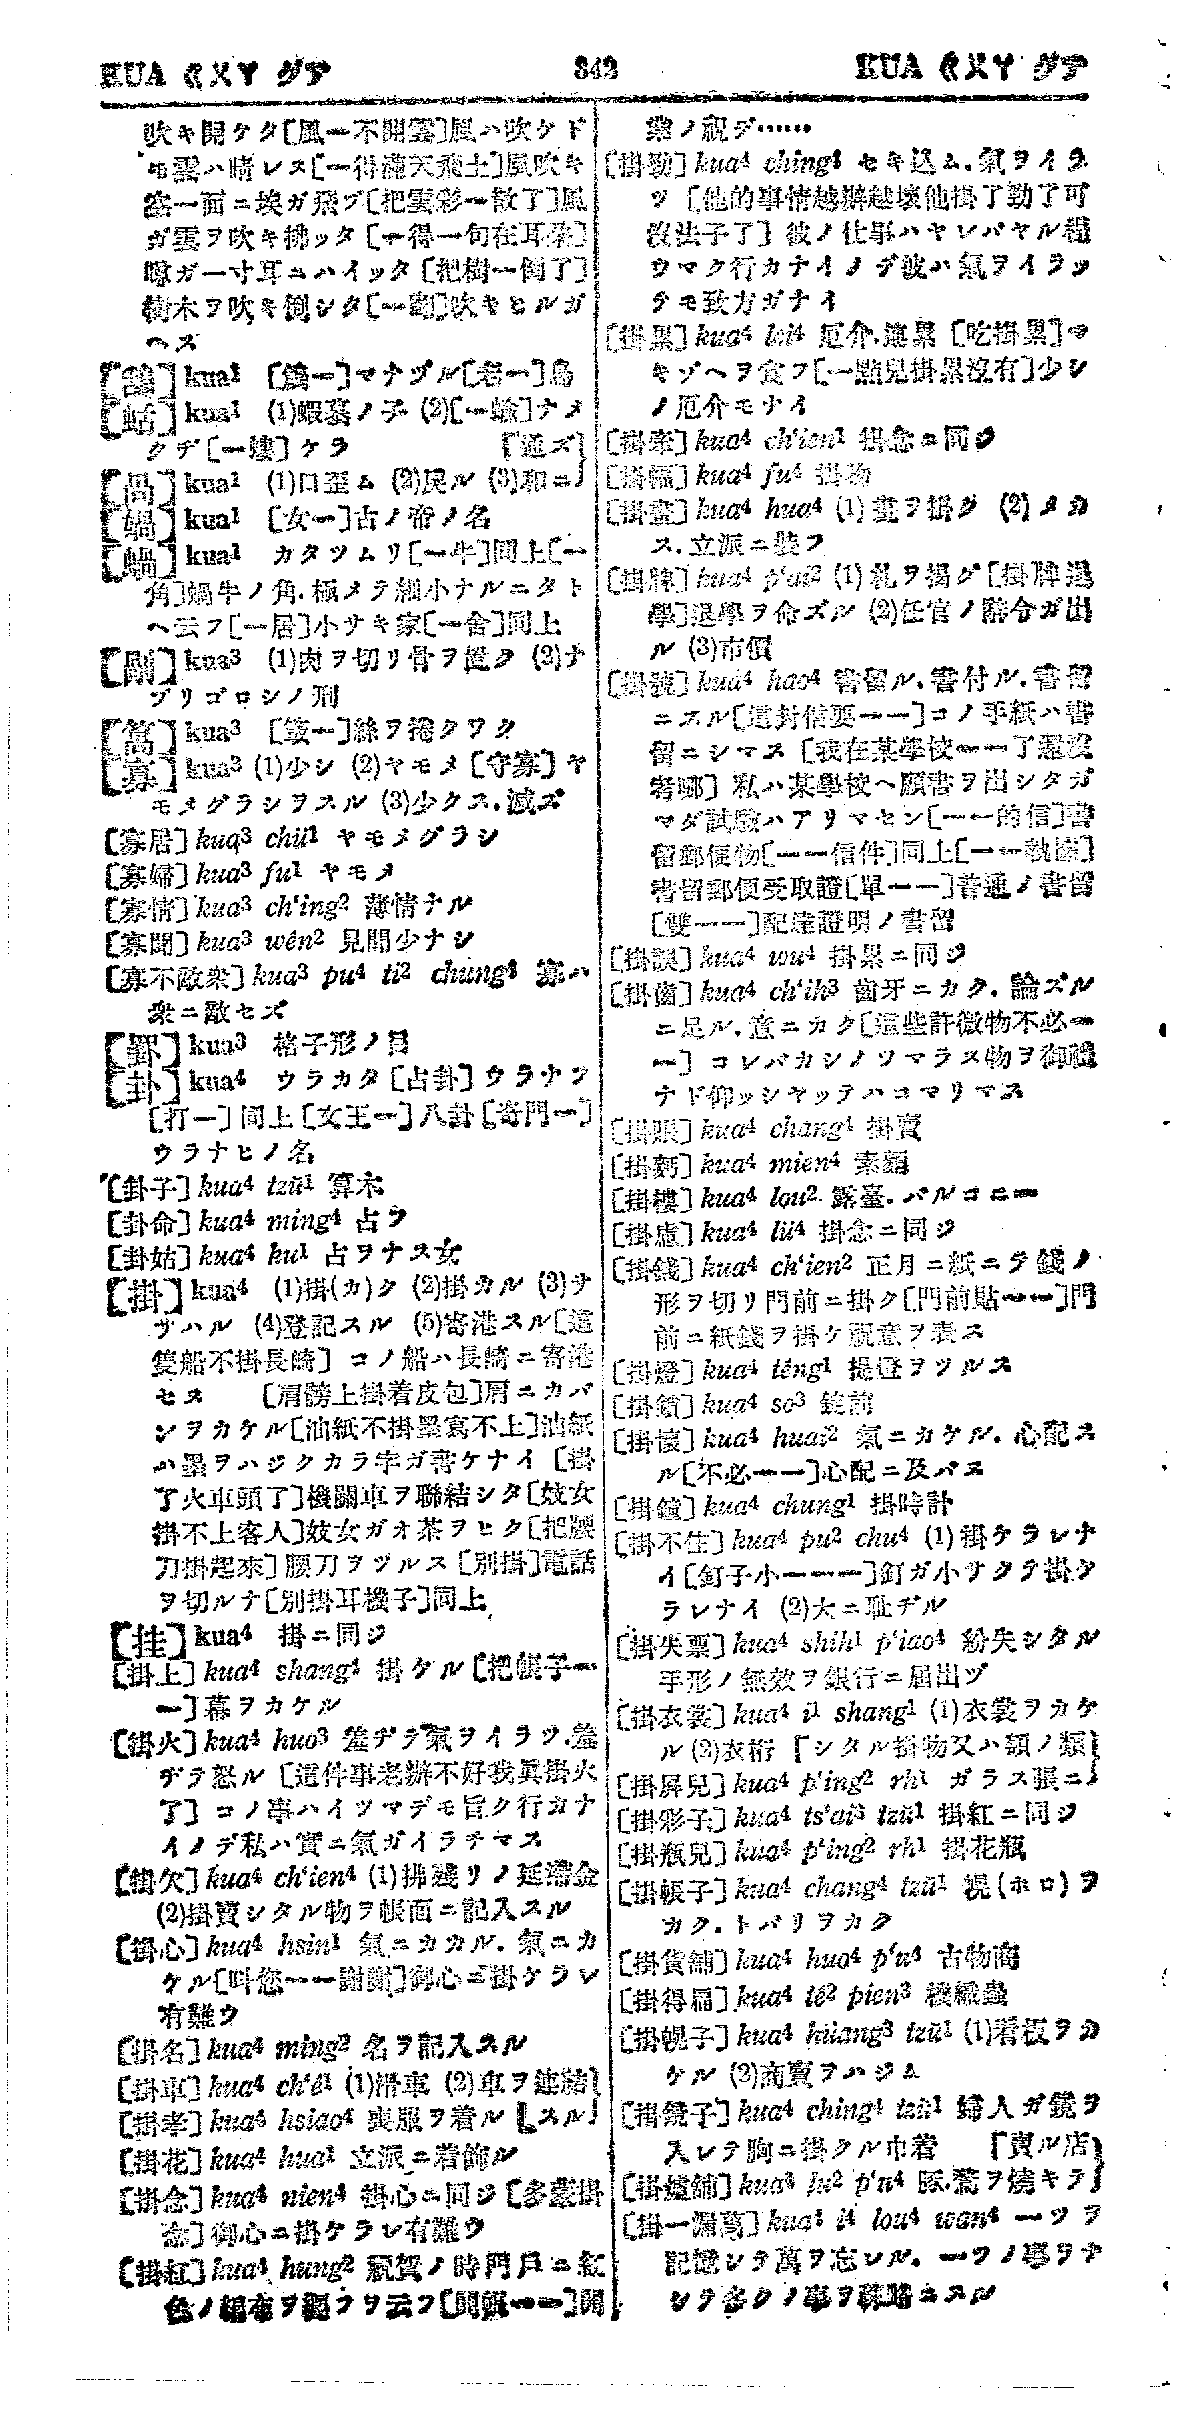 KUA ㄍㄨㄚ グア 342 KUA ㄍㄨㄚ グア
吹キ開ケタ[風一不開雲]風ハ吹ケド
モ雲ハ晴レヌ[一得滿天飛土]風吹キ
空一面ニ埃ガ飛ブ[把雲彩一散了]風
ガ雲ヲ吹キ拂ッタ[一得一句在耳朶]
ガ一寸耳ニハイッタ[把樹一倒了]
樹木ヲ吹キ倒シタ[一]吹キヒルガ
ヘス
[鴰] kua¹ [鶬一]マナヅル[老一]烏
[蛞] kua¹ (1)蝦蟇ノ子 (2)[一蝓]ナメ
クヂ[一螻]ケラ 「通ズ
[咼] kua¹ (1)口歪ム (2)戻ル (3)和ニ
[媧] kua¹ [女一]古ノ帝ノ名
[蝸] kua¹ カタツムリ[一牛]同上[一
角]蝸牛ノ角.極メテ細小ナルニタト
ヘ云フ[一居]小サキ家[一舍]同上
[剮] kua³ (1)肉ヲ切リ骨ヲ置ク (2)ナ
ブリゴロシノ刑
kua³ 絲ヲ捲クワク
[寡] kua³ (1)少シ (2)ヤモメ[守寡]ヤ
モメグラシヲスル (3)少クス.減ズ
[寡居] kua³ chü¹ ヤモメグラシ
[寡婦] kua³ fu¹ ヤモメ
[寡情] kua³ ch'ing² 薄情ナル
[寡聞] kua³ wên² 見聞少ナシ
[寡不敵衆] kua³ pu⁴ ti² chung⁴ 寡ハ
衆ニ敵セズ
[罫] kua³ 格子形ノ目
[卦] kua⁴ ウラカタ[占卦]ウラナフ
[打一]同上[女王一]八卦[奇門一]
ウラナヒノ名
[卦子] kua⁴ tzŭ¹ 算木
[卦命] kua⁴ ming⁴ 占ヲ
[卦姑] kua⁴ ku¹ 占ヲナス女
[掛] kua⁴ (1)掛(カ)ク (2)掛カル (3)サ
ザハル (4)登記スル (5)寄港スル[這
隻船不掛長崎] コノ船ハ長崎ニ寄港
セヌ [肩膀上掛着皮包]肩ニカバ
ンヲカケル[油紙不掛墨寫不上]油紙
ハ墨ヲハジクカラ字ガ書ケナイ [掛
了火車頭了]機關車ヲ聯結シタ[妓女
掛不上客人]妓女ガオ茶ヲヒク[把腰
刀掛起來]腰刀ヲヅルス[別掛]電話
ヲ切ルナ[別掛耳機子]同上
[挂] kua⁴ 掛ニ同ジ
[掛上] kua⁴ shang⁴ 掛ケル[把幌子一
一]幕ヲカケル
[掛火] kua⁴ huo³ 羞ヂテ氣ヲイラツ.羞
ヂテ怒ル [這件事老辦不好我眞掛火
了] コノ事ハイツマデモ旨ク行カナ
イノデ私ハ實ニ氣ガイラチマス
[掛欠] kua⁴ ch'ien⁴ (1)拂殘リノ延滯金
(2)掛賣シタル物ヲ帳面ニ記入スル
[掛心] kua⁴ hsin¹ 氣ニカカル.氣ニカ
ケル[叫您一一謝謝]御心ニ掛ケラレ
有難ウ
[掛名] kua⁴ ming² 名ヲ記入スル
[掛車] kua⁴ ch'ê¹ (1)滑車 (2)車ヲ連結
[掛孝] kua⁴ hsiao⁴ 喪服ヲ着ル 「スル
[掛花] kua⁴ hua¹ 立派ニ着飾ル
[掛念] kua⁴ nien⁴ 掛心ニ同ジ[多蒙掛
念]御心ニ掛ケラレ有難ウ
[掛紅] kua⁴ hung² 祝賀ノ時門戸ニ紅
色ノ綢布ヲ飾ラヲ云フ[開張一一]開
業ノ祝デ……
[掛勁] kua⁴ ching⁴ セキ込ム.氣ヲイラ
ツ [他的事情越辦越壞他掛了勁了可
沒法子了] 彼ノ仕事ハヤレバヤル程
ウマク行カナイノデ彼ハ氣ヲイラッ
テモ致方ガナイ
[掛累] kua⁴ lei⁴ 厄介.連累 [吃掛累]マ
キゾヘヲ食フ[一點兒掛累沒有]少シ
ノ厄介モナイ
[掛牽] kua⁴ ch'ien¹ 掛念ニ同ジ
[掛幅] kua⁴ fu⁴ 掛物
[掛畫] kua⁴ hua⁴ (1)畫ヲ掛グ (2)メカ
ス.立派ニ裝フ
[掛牌] kua⁴ p'ai² (1)札ヲ揭グ[掛牌退
學]退學ヲ命ズル (2)任官ノ辭令ガ出
ル (3)市價
[掛號] kua⁴ hao⁴ 書留ル.書付ル.書留
ニスル[這封信要一一]コノ手紙ハ書
留ニシマス [我在某學校一一了還沒
考哪] 私ハ某學校ヘ願書ヲ出シタガ
マダ試驗ハアリマセン[一一的信]書
留郵便物[一一信件]同上[一一執據]
書留郵便受取證[單一一]普通ノ書留
[雙一一]配達證明ノ書留
[掛誤] kua⁴ wu⁴ 掛累ニ同ジ
[掛齒] kua⁴ ch'ih³ 齒牙ニカク.論ズル
ニ足ル.意ニカク[這些許微物不必一
一] コレバカシノツマラヌ物ヲ御禮
ナド仰ッシャッテハコマリマス
[掛賬] kua⁴ chang⁴ 掛賣
[掛麪] kua⁴ mien⁴ 素麵
[掛樓] kua⁴ lou² 露臺.バルコニー
[掛慮] kua⁴ lü⁴ 掛念ニ同ジ
[掛錢] kua⁴ ch'ien² 正月ニ紙ニテ錢ノ
形ヲ切リ門前ニ掛ク[門前貼一一]門
前ニ紙錢ヲ掛ケ祝意ヲ表ス
[掛燈] kua⁴ têng¹ 提燈ヲツルス
[掛鎖] kua⁴ so³ 錠前
[掛懷] kua⁴ huai² 氣ニカケル.心配ス
ル[不必一一]心配ニ及バヌ
[掛鐘] kua⁴ chung¹ 掛時計
[掛不住] kua⁴ pu² chu⁴ (1)掛ケラレナ
イ[釘子小一一一]釘ガ小サクテ掛ケ
ラレナイ (2)大ニ耻ヂル
[掛失票] kua⁴ shih¹ p'iao⁴ 紛失シタル
手形ノ無效ヲ銀行ニ屆出ヅ
[掛衣裳] kua⁴ i¹ shang¹ (1)衣裳ヲカケ
ル (2)衣桁 「シタル掛物又ハ額ノ類
[掛屛兒] kua⁴ p'ing² rh¹ ガラス張ニ
[掛彩子] kua⁴ ts'ai³ tzŭ¹ 掛紅ニ同ジ
[掛瓶兒] kua⁴ p'ing² rh¹ 掛花瓶
[掛帳子] kua⁴ chang⁴ tzŭ¹ 幌(ホロ)ヲ
カク.トバリヲカク
[掛貨舖] kua⁴ huo⁴ p'u⁴ 古物商
[掛得扁] kua⁴ tê² pien³
[掛幌子] kua⁴ huang³ tzŭ¹ (1)看板ヲカ
ケル (2)商賣ヲハジム
[掛鏡子] kua⁴ ching⁴ tzŭ¹ 婦人ガ鏡ヲ
入レテ胸ニ掛クル巾着 「賣ル店
[掛爐舖] kua⁴ lu² p'u⁴ 豚.鶩ヲ燒キテ
[掛一漏萬] kua⁴ i⁴ lou⁴ wan⁴ 一ツヲ
記憶シテ萬ヲ忘レル.一ツノ事ヲナ
シテ多クノ事ヲ疎略ニスル